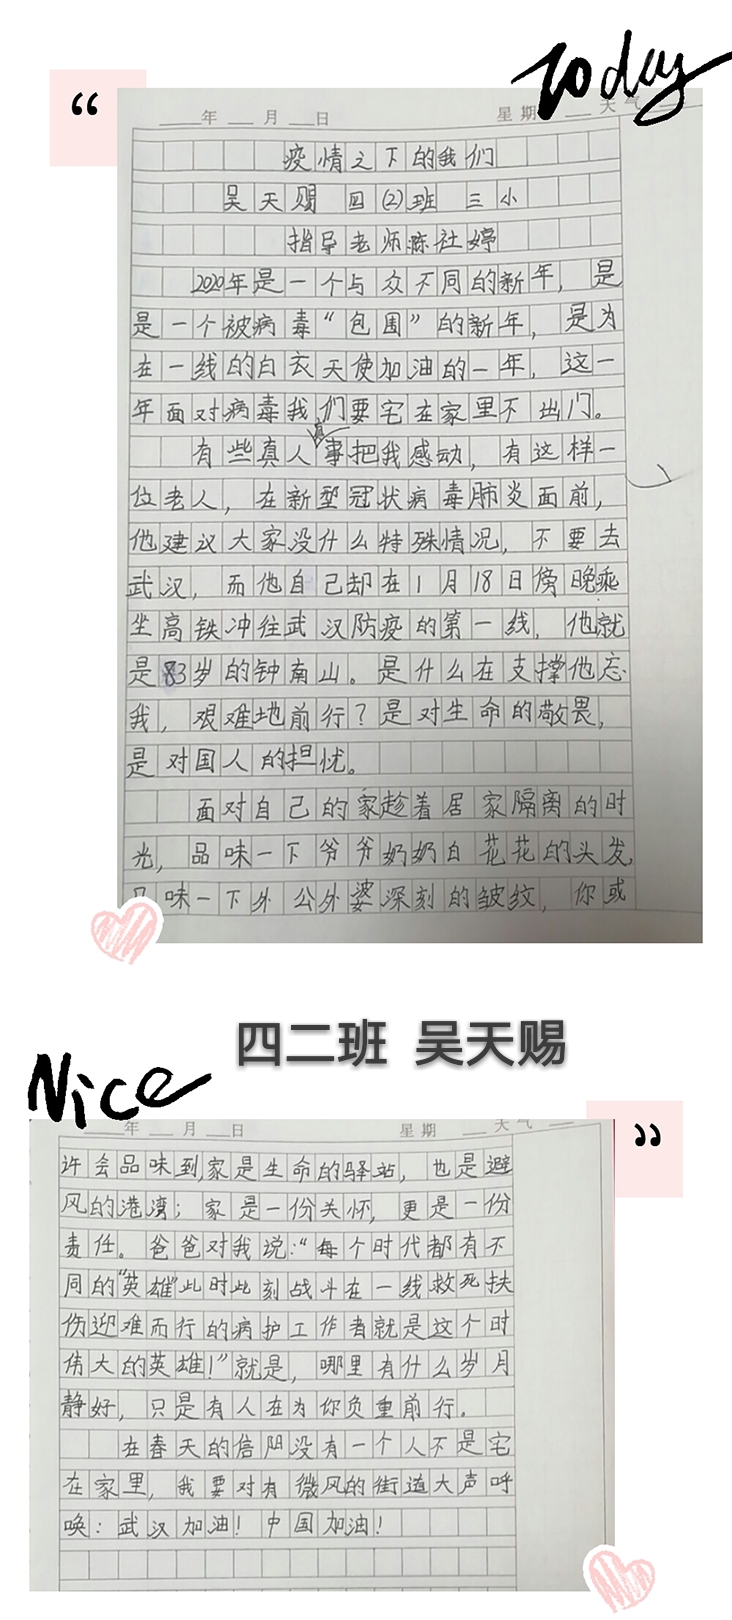 “
Today
年 月 日 星期 天气
疫情之下的我们
吴天赐 四(2)班 三小
指导老师陈社婷
2020年是一个与众不同的新年，是
是一个被病毒“包围”的新年，是为
在一线的白衣天使加油的一年，这一
年面对病毒我们要宅在家里不出门。
真
有些真人事把我感动，有这样一
位老人，在新型冠状病毒肺炎面前，
他建议大家没什么特殊情况，不要去
武汉，而他自己却在1月18日傍晚乘
坐高铁冲往武汉防疫的第一线，他就
是83岁的钟南山。是什么在支撑他忘
我，艰难地前行？是对生命的敬畏，
是对国人的担忧。
面对自己的家趁着居家隔离的时
光，品味一下爷爷奶奶白花花的头发，
味一下外公外婆深刻的皱纹，你或
四二班 吴天赐
Nice
”
年 月 日 星期 天气
许会品味到，家是生命的驿站，也是避
风的港湾；家是一份关怀，更是一份
责任。爸爸对我说：“每个时代都有不
同的“英雄”此时此刻战斗在一线救死扶
伤迎难而行的病护工作者就是这个时
伟大的英雄！”就是，哪里有什么岁月
静好，只是有人在为你负重前行。
在春天的信阳没有一个人不是宅
在家里，我要对有微风的街道大声呼
唤：武汉加油！中国加油！